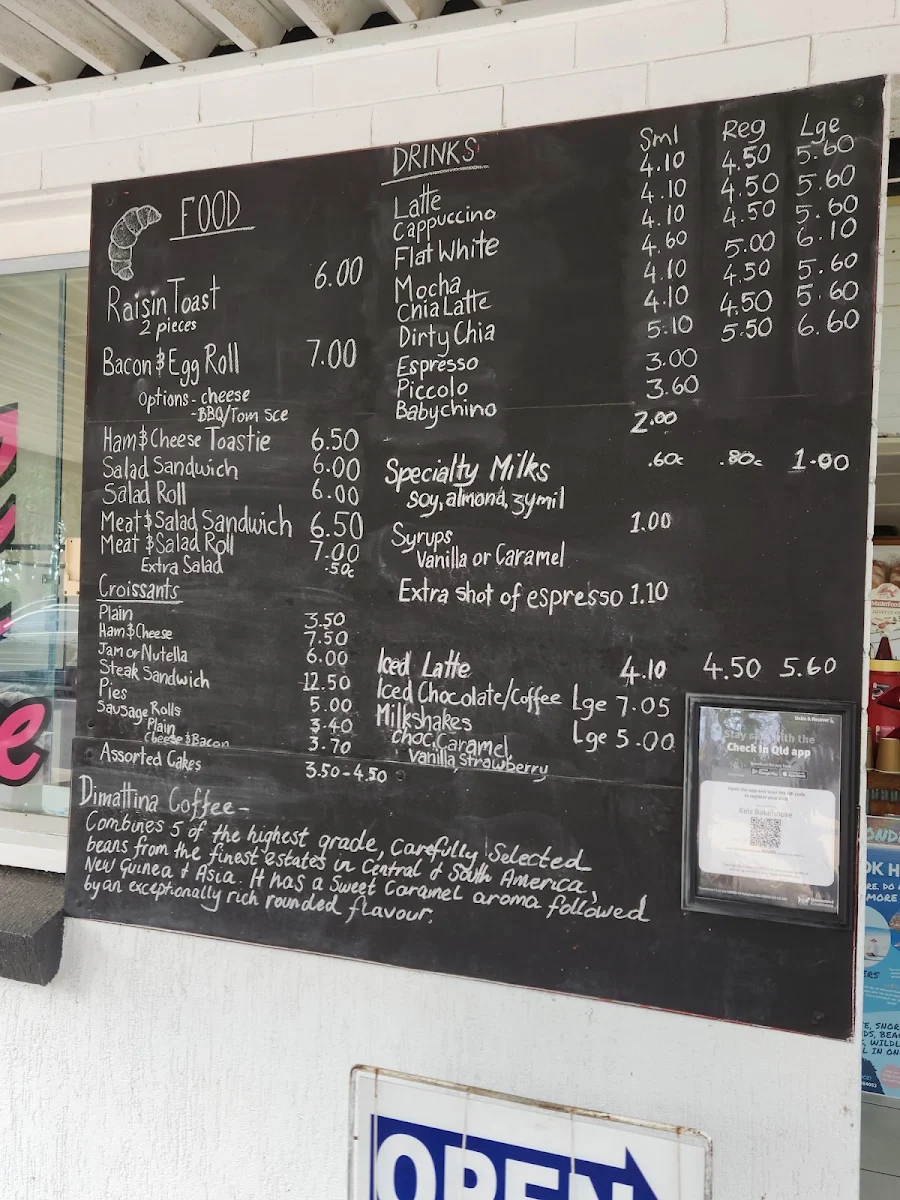 FOOD
Raisin Toast 6.00
2 pieces
Bacon & Egg Roll 7.00
Options - cheese
- BBQ/Tom sce
Ham & Cheese Toastie 6.50
Salad Sandwich 6.00
Salad Roll 6.00
Meat & Salad Sandwich 6.50
Meat & Salad Roll 7.00
Extra Salad .50c
Croissants
Plain 3.50
Ham & Cheese 7.50
Jam or Nutella 6.00
Steak Sandwich 12.50
Pies 5.00
Sausage Rolls
Plain 3.40
Cheese & Bacon 3.70
Assorted Cakes 3.50-4.50
DRINKS
Latte
Cappuccino
Flat White
Mocha
Chia Latte
Dirty Chia
Espresso
Piccolo
Babychino
Sml Reg Lge
4.10 4.50 5.60
4.10 4.50 5.60
4.10 4.50 5.60
4.60 5.00 6.10
4.10 4.50 5.60
4.10 4.50 5.60
5.10 5.50 6.60
3.00
3.60
2.00
Specialty Milks .60c .80c 1.00
Soy, almond, zymil
Syrups 1.00
Vanilla or Caramel
Extra shot of espresso 1.10
Iced Latte 4.10 4.50 5.60
Iced Chocolate/Coffee Lge 7.05
Milkshakes Lge 5.00
choc, Caramel,
Vanilla Strawberry
Dimattina Coffee -
Combines 5 of the highest grade, Carefully Selected
beans from the finest estates in Central & South America,
New Guinea & Asia. It has a Sweet Caramel aroma followed
by an exceptionally rich rounded flavour.
Stay safe with the
Check In Qld app
Kels Bakehouse
OPEN